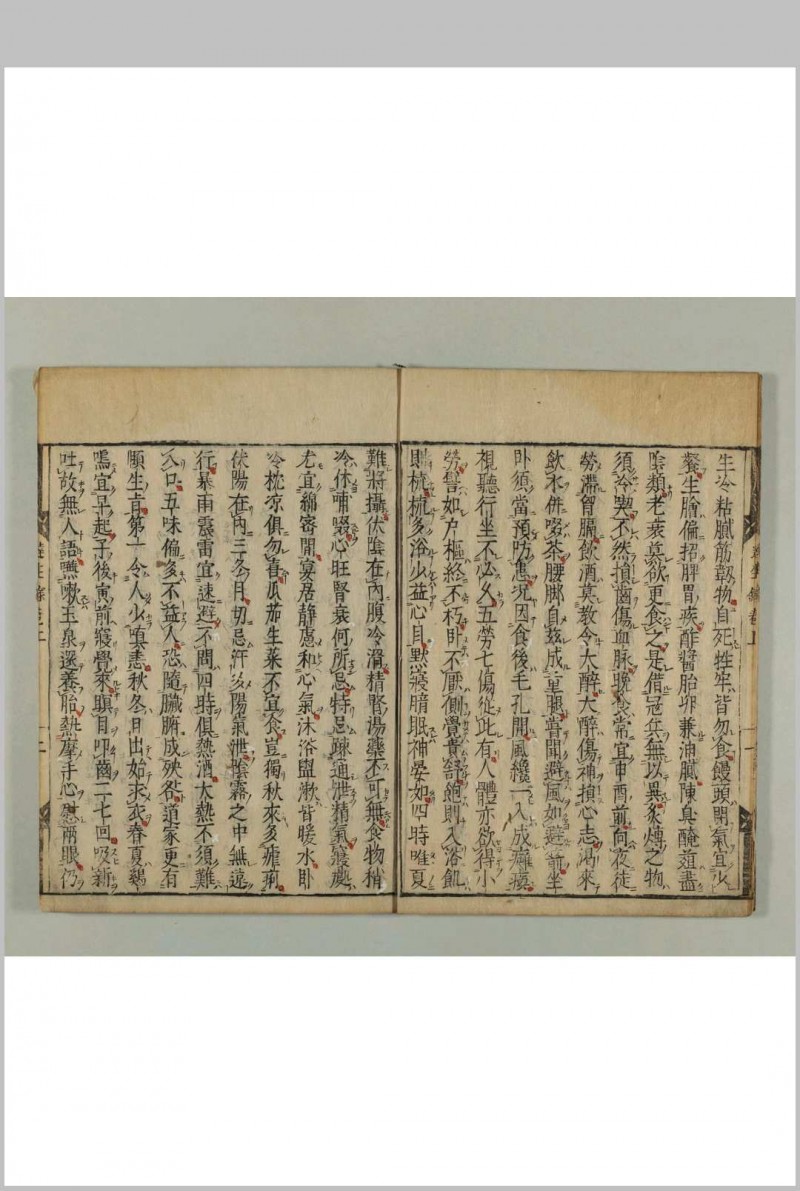 生冷粘膩筋韌物自死牲牢皆勿食饅頭閉氣宜少
餐生膾偏招脾胃疾酢醬胎卵兼油膩陳臭醃葅盡
陰類老衰莫欲更食之是借冦兵無以異炙煿之物
須冷喫不然損齒傷血脉晚食常宜申酉前向夜徒
勞滯胷膈飲酒莫教令大醉大醉傷神損心志渴來
飲水併啜茶腰脚自兹成重膇嘗聞避風如避箭坐
卧須當預防患况因食後毛孔開風纔一入成癱瘓
視聽行坐不必久五勞七傷從此有人體亦欲得小
勞譬如户樞終不朽卧不厭側覺貴舒飽則入浴飢
則梳梳多浴少益心目默寢暗眠神晏如四時唯夏
難將攝伏陰在內腹冷滑補腎湯藥不可無食物稍
冷休哺啜心旺腎衰何所忌特忌疎通泄精氣寢處
尤宜綿密閒宴居靜慮和心氣沐浴盥漱皆暖水卧
冷枕凉俱勿喜瓜茄生菜不宜食豈獨秋來多瘧痢
伏陽在內三冬月切忌汗多陽氣泄陰霧之中無遠
行暴雨震雷宜速避不問四時俱熱酒太熱不須難
入口五味偏多不益人恐隨臟腑成殃咎道家更有
頤生旨第一令人少嗔恚秋冬日出始求衣春夏鷄
鳴宜早起子後寅前寢覺來瞑目叩齒二七回吸新
吐故無人語嚥嗽玉泉還養胎熱摩手心慰兩眼仍